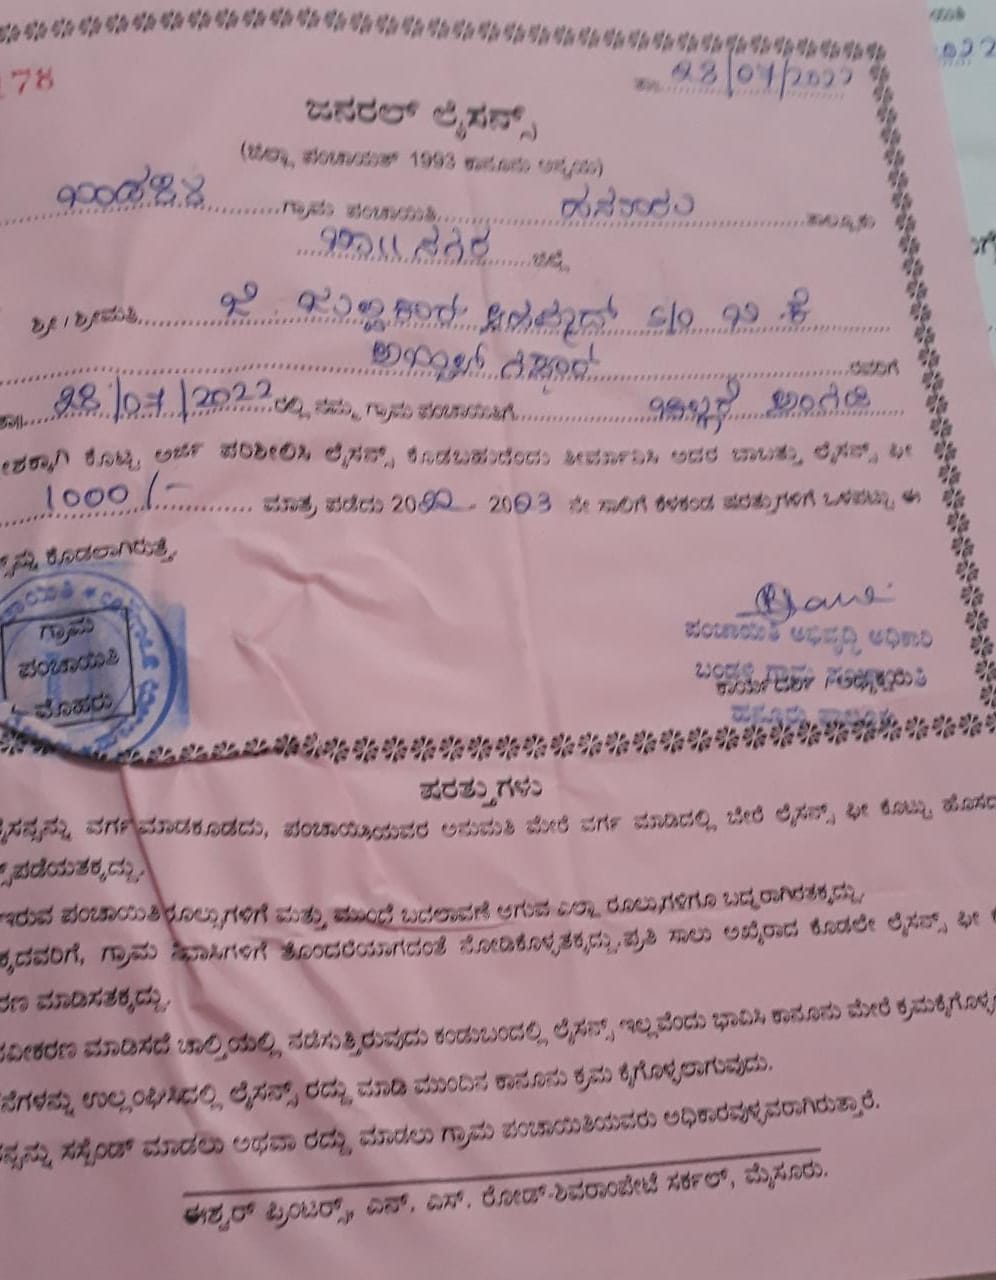 178
ತಾ. 28/07/2022
2022
ಜನರಲ್ ಲೈಸನ್ಸ್
(ಜಿಲ್ಲಾ ಪಂಚಾಯತ್ 1993 ಕಾನೂನು ಅನ್ವಯ)
ಬಂಡಳ್ಳಿ ಗ್ರಾಮ ಪಂಚಾಯಿತಿ ಹನೂರು ತಾಲ್ಲೂಕು
ಚಾ|| ನಗರ ಜಿಲ್ಲೆ
ಶ್ರೀ / ಶ್ರೀಮತಿ S/o ಬಿ ಕೆ
ಅಬ್ದುಲ್ ಗಫೂರ್ ರವರಿಗೆ
ತಾ. 28/07/2022 ರಲ್ಲಿ ನಮ್ಮ ಗ್ರಾಮ ಪಂಚಾಯಿತಿಗೆ ಚಿಲ್ಲರೆ ಅಂಗಡಿ
ಕೊಟ್ಟ ಅರ್ಜಿ ಪರಿಶೀಲಿಸಿ ಲೈಸನ್ಸ್ ಕೊಡಬಹುದೆಂದು ತೀರ್ಮಾನಿಸಿ ಅದರ ಬಾಬತ್ತು ಲೈಸನ್ಸ್ ಫೀ
1000/- ಮಾತ್ರ ಪಡೆದು 2022 - 2023 ನೇ ಸಾಲಿಗೆ ಕೆಳಕಂಡ ಷರತ್ತುಗಳಿಗೆ ಒಳಪಟ್ಟು ಈ
ಕೊಡಲಾಗಿರುತ್ತೆ.
ಗ್ರಾಮ
ಪಂಚಾಯಿತಿ
ಮೊಹರು
ಪಂಚಾಯಿತಿ ಅಭಿವೃದ್ಧಿ ಅಧಿಕಾರಿ
ಬಂಡಳ್ಳಿ ಗ್ರಾಮ ಪಂಚಾಯಿತಿ
ಹನೂರು ತಾಲ್ಲೂಕು
ಷರತ್ತುಗಳು
ವರ್ಗ ಮಾಡಕೂಡದು, ಪಂಚಾಯ್ತಿಯವರ ಅನುಮತಿ ಮೇರೆ ವರ್ಗ ಮಾಡಿದಲ್ಲಿ ಬೇರೆ ಲೈಸನ್ಸ್ ಫೀ ಕೊಟ್ಟು
ಇರುವ ಪಂಚಾಯಿತಿ ರೂಲ್ಸುಗಳಿಗೆ ಮತ್ತು ಮುಂದೆ ಬದಲಾವಣೆ ಆಗುವ ಎಲ್ಲಾ ರೂಲುಗಳಿಗೂ ಬದ್ಧರಾಗಿರತಕ್ಕದ್ದು.
ಗ್ರಾಮ ನಿವಾಸಿಗಳಿಗೆ ತೊಂದರೆಯಾಗದಂತೆ ನೋಡಿಕೊಳ್ಳತಕ್ಕದ್ದು. ಪ್ರತಿ ಸಾಲು ಅಖೈರಾದ ಕೂಡಲೇ ಲೈಸನ್ಸ್ ಫೀ
ಮಾಡಿಸತಕ್ಕದ್ದು.
ಮಾಡಿಸದೆ ಚಾಲ್ತಿಯಲ್ಲಿ ನಡೆಸುತ್ತಿರುವುದು ಕಂಡುಬಂದಲ್ಲಿ ಲೈಸನ್ಸ್ ಇಲ್ಲವೆಂದು ಭಾವಿಸಿ ಕಾನೂನು ಮೇರೆ
ಉಲ್ಲಂಘಿಸಿದಲ್ಲಿ ಲೈಸನ್ಸ್ ರದ್ದು ಮಾಡಿ ಮುಂದಿನ ಕಾನೂನು ಕ್ರಮ ಕೈಗೊಳ್ಳಲಾಗುವುದು.
ಸಸ್ಪೆಂಡ್ ಮಾಡಲು ಅಥವಾ ರದ್ದು ಮಾಡಲು ಗ್ರಾಮ ಪಂಚಾಯಿತಿಯವರು ಅಧಿಕಾರವುಳ್ಳವರಾಗಿರುತ್ತಾರೆ.
ಈಶ್ವರ್ ಪ್ರಿಂಟರ್ಸ್, ಎನ್. ಎಸ್. ರೋಡ್-ಶಿವರಾಂಪೇಟೆ ಸರ್ಕಲ್, ಮೈಸೂರು.